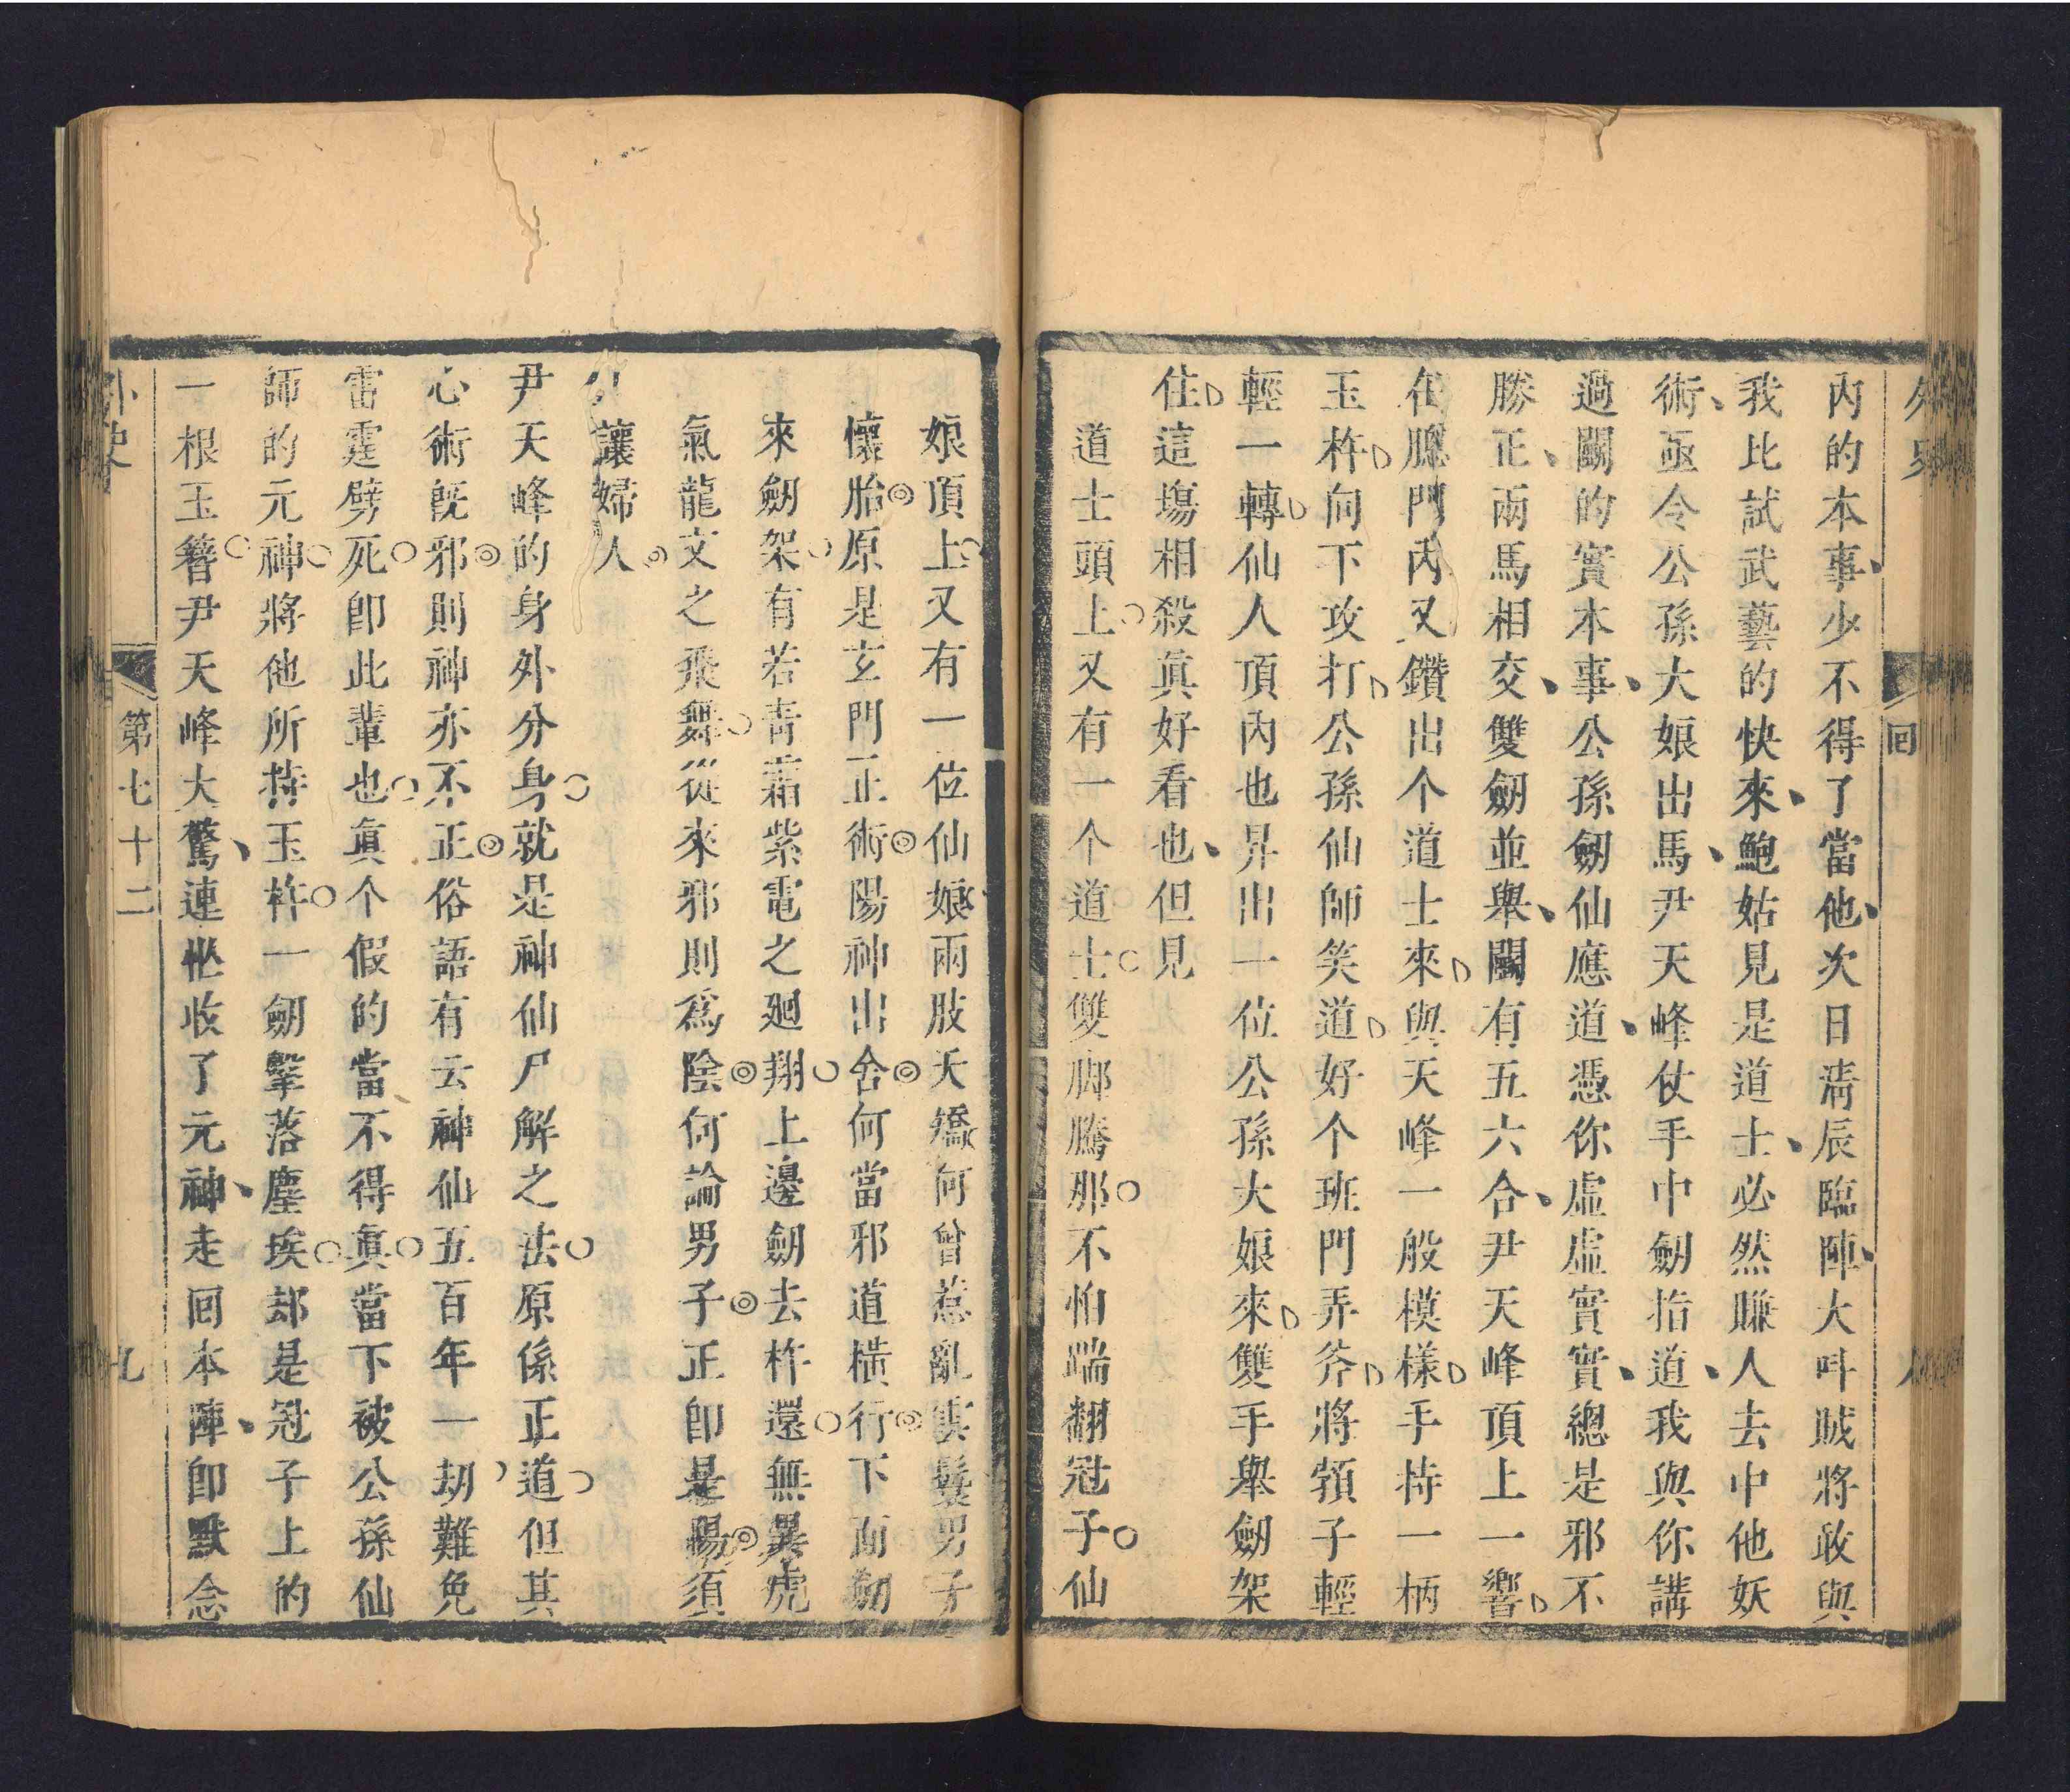 外史
回
內的本事少不得了當他次日淸辰臨陣大呌賊將敢與
我比試武藝的快來鮑姑見是道士必然賺人去中他妖
術亟令公孫大娘出馬尹天峰仗手中劒指道我與你講
過鬭的實本事公孫劒仙應道憑你虛虛實實總是邪不
勝正兩馬相交雙劒並舉鬭有五六合尹天峰頂上一響
在腮門內又鑽出个道士來與天峰一般模樣手持一柄
玉杵向下攻打公孫仙師笑道好个班門弄斧將頷子輕
輕一轉仙人頂內也昇出一位公孫大娘來雙手舉劒架
住這塲相殺眞好看也但見
道士頭上又有一个道士雙脚騰那不怕踹翻冠子仙
娘頂上又有一位仙娘兩肢夭矯何曾惹亂雲鬟男子
懷胎原是玄門正術陽神出舍何當邪道橫行下面劒
來劒架有若靑霜紫電之廻翔上邊劒去杵還無異虎
氣龍文之飛舞從來邪則爲陰何論男子正卽是陽須
讓婦人
尹天峰的身外分身就是神仙尸解之法原係正道但其
心術旣邪則神亦不正俗語有云神仙五百年一刼難免
雷霆劈死卽此輩也眞个假的當不得眞當下被公孫仙
師的元神將他所持玉杵一劒擊落塵埃却是冠子上的
一根玉簪尹天峰大驚連忙收了元神走回本陣卽默念
外史
第七十二
九